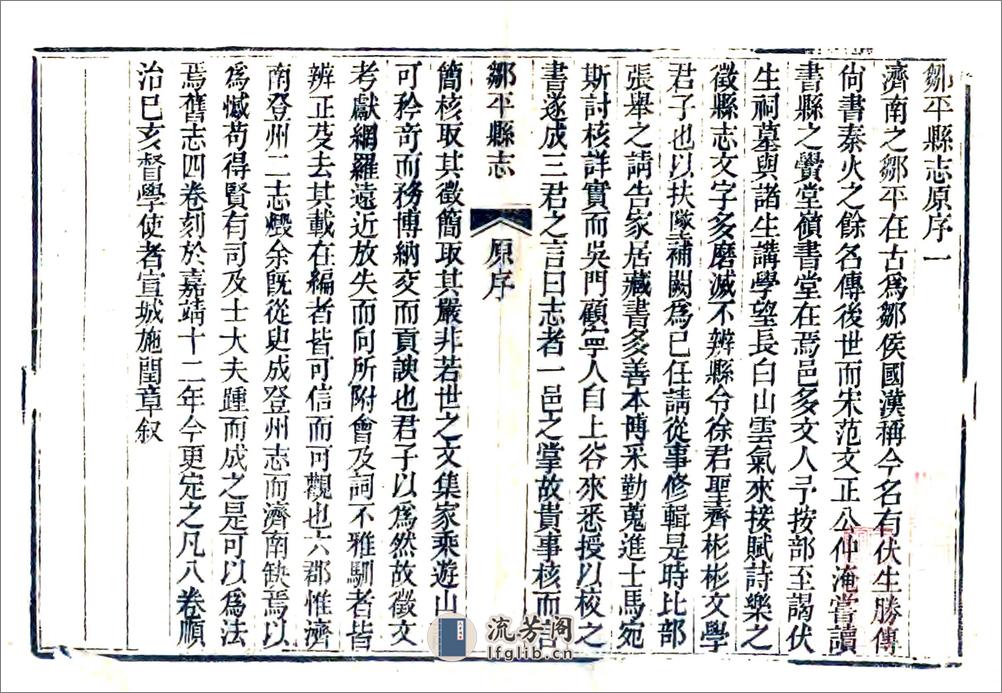 鄒平縣志原序一
濟南之鄒平在古爲鄒侯國漢稱今名有伏生勝傳
尙書秦火之餘名傳後世而宋范文正公仲淹嘗讀
書縣之黌堂嶺書堂在焉邑多文人予按部至謁伏
生祠墓與諸生講學望長白山雲氣來接賦詩樂之
徵縣志文字多磨滅不辨縣令徐君聖齊彬彬文學
君子也以扶墜補闕爲已任請從事修輯是時比部
張舉之請告家居藏書多善本博采勤蒐進士馬宛
斯討核詳實而吳門顧寧人自上谷來悉授以校之
書遂成三君之言曰志者一邑之掌故貴事核而言
鄒平縣志
原序
簡核取其徵簡取其嚴非若世之文集家乘遊山
可矜奇而務博納交而貢諛也君子以爲然故徵文
考獻網羅遠近放失而向所附會及詞不雅馴者皆
辨正芟去其載在編者皆可信而可觀也六郡惟濟
南登州二志燬余旣從臾成登州志而濟南缺焉以
爲憾苟得賢有司及士大夫踵而成之是可以爲法
焉舊志四卷刻於嘉靖十二年今更定之凡八卷順
治已亥督學使者宣城施閏章叙
流芳阁
lfglib.cn